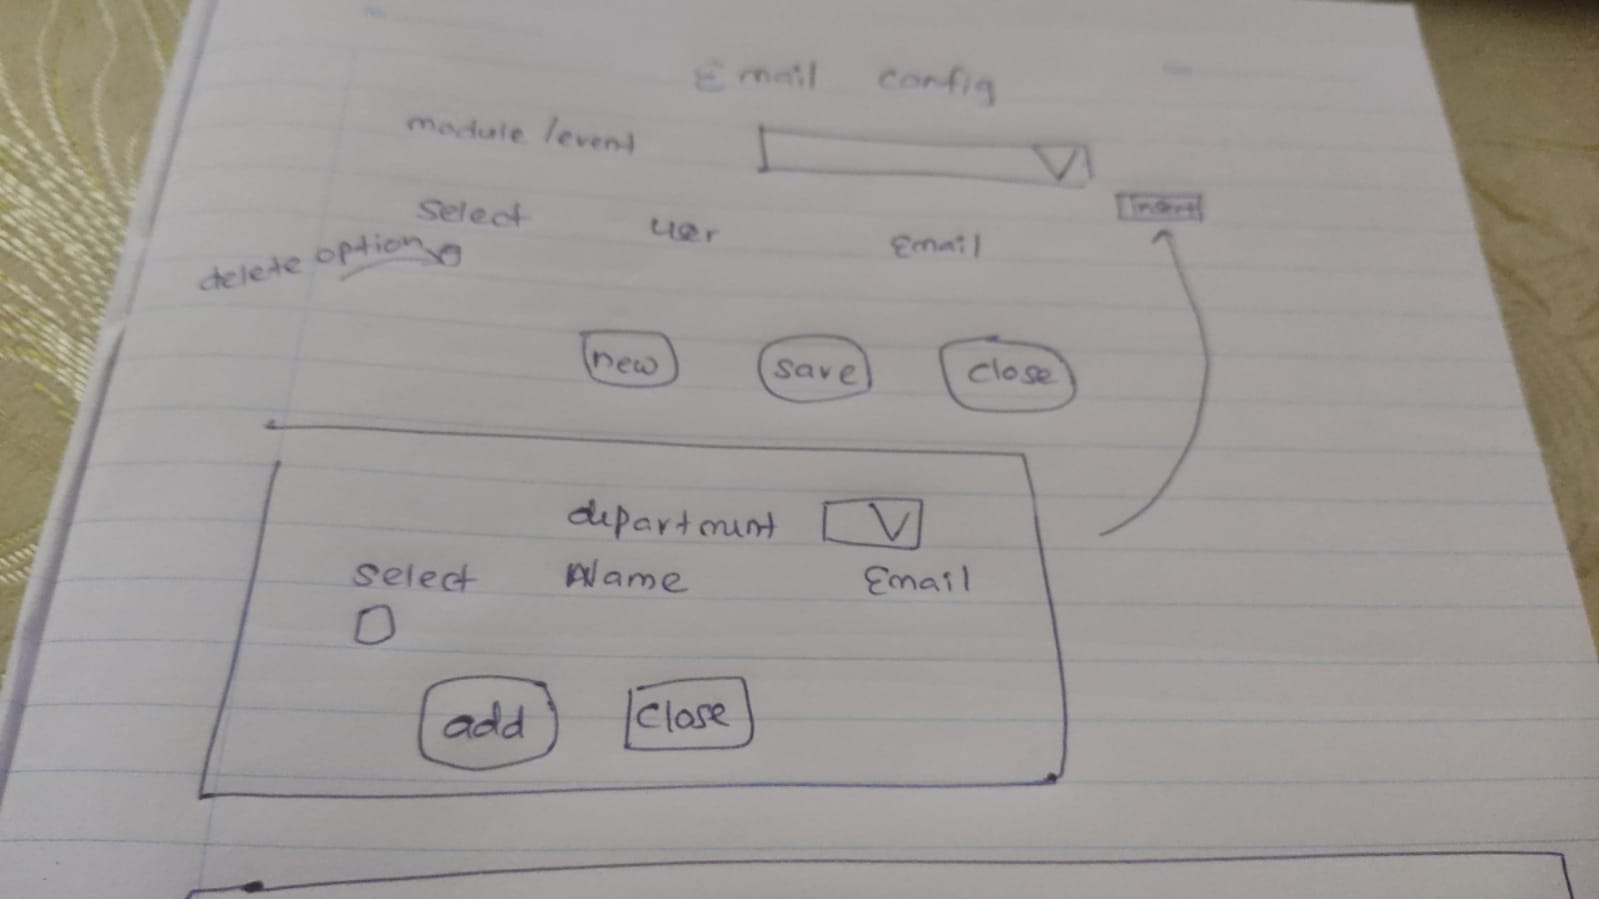 Email config
module / event
Insert
Select user Email
delete option
new save close
department
select Name Email
add close